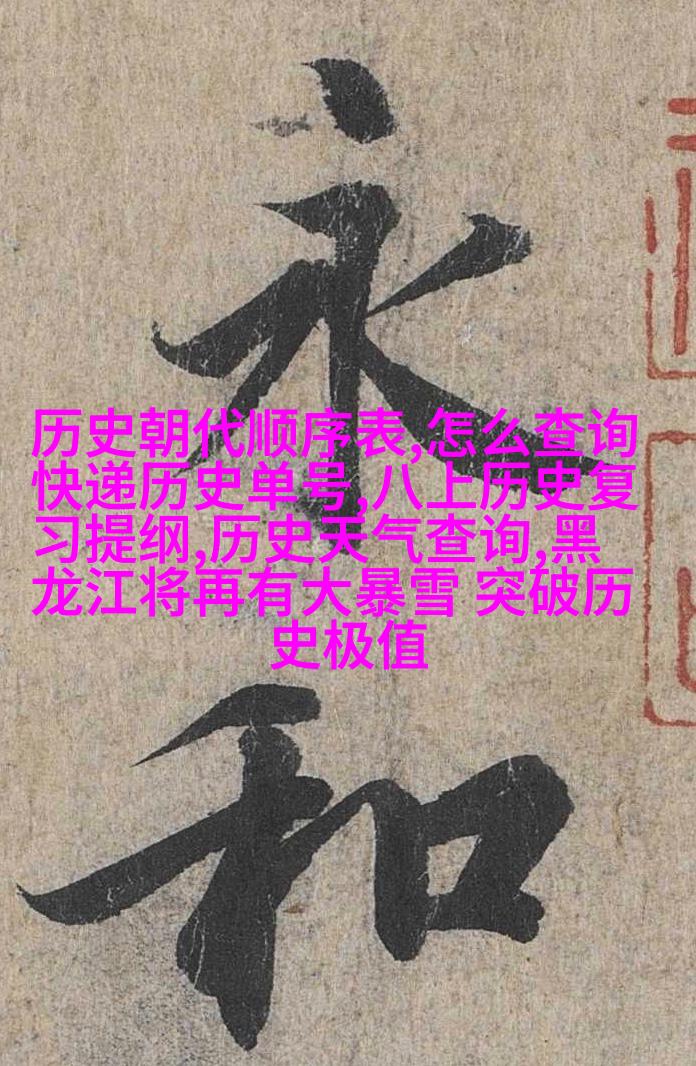 永
历史朝代顺序表,怎么查询
快递历史单号,八上历史复
习提纲,历史天气查询,黑
龙江将再有大暴雪 突破历
史极值
和